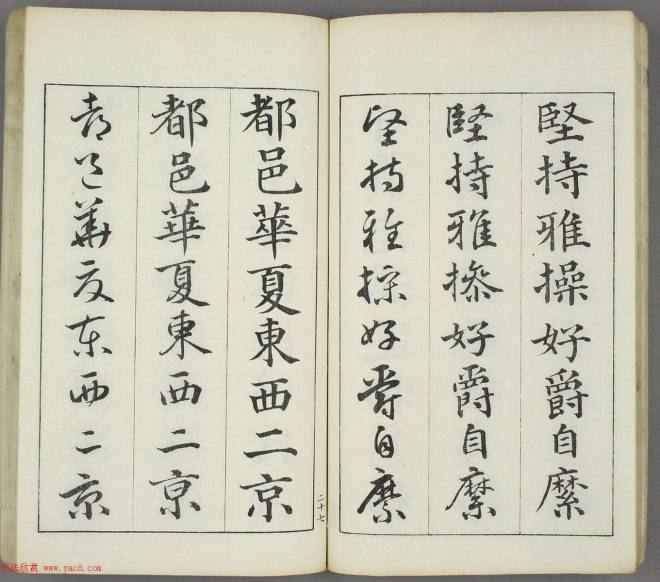 堅持雅操好爵自縻
堅持雅操好爵自縻
堅持雅操好爵自縻
二十七
都邑華夏東西二京
都邑華夏東西二京
都邑華夏東西二京
书法欣赏 www.yac8.com